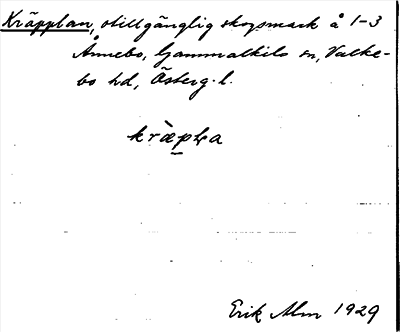 Kräpplan, otillgänglig skogsmark å 1-3
Ånnebo, Gammalkils sn, Valke-
bo hd, Österg. l.
kræpḷa
Erik Alm 1929